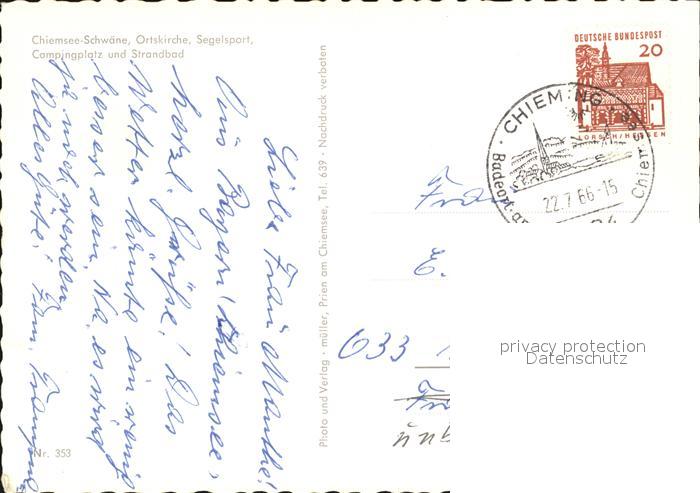 Chiemsee-Schwäne, Ortskirche, Segelsport,
Campingplatz und Strandbad
Liebe Frau Manthe!
Vom Bayer. Chiemsee,
herzl. Grüße! Das
Wetter könnte ein wenig
besser sein. Na, es wird
ja noch werden
Alles Gute! Fam.
Nr. 353
Photo und Verlag · müller, Prien am Chiemsee, Tel. 639 · Nachdruck verboten
DEUTSCHE BUNDESPOST
20
LORSCH/HESSEN
CHIEMING
Badeort am
22.7.66-15
Frau
E.
633
privacy protection
Datenschutz